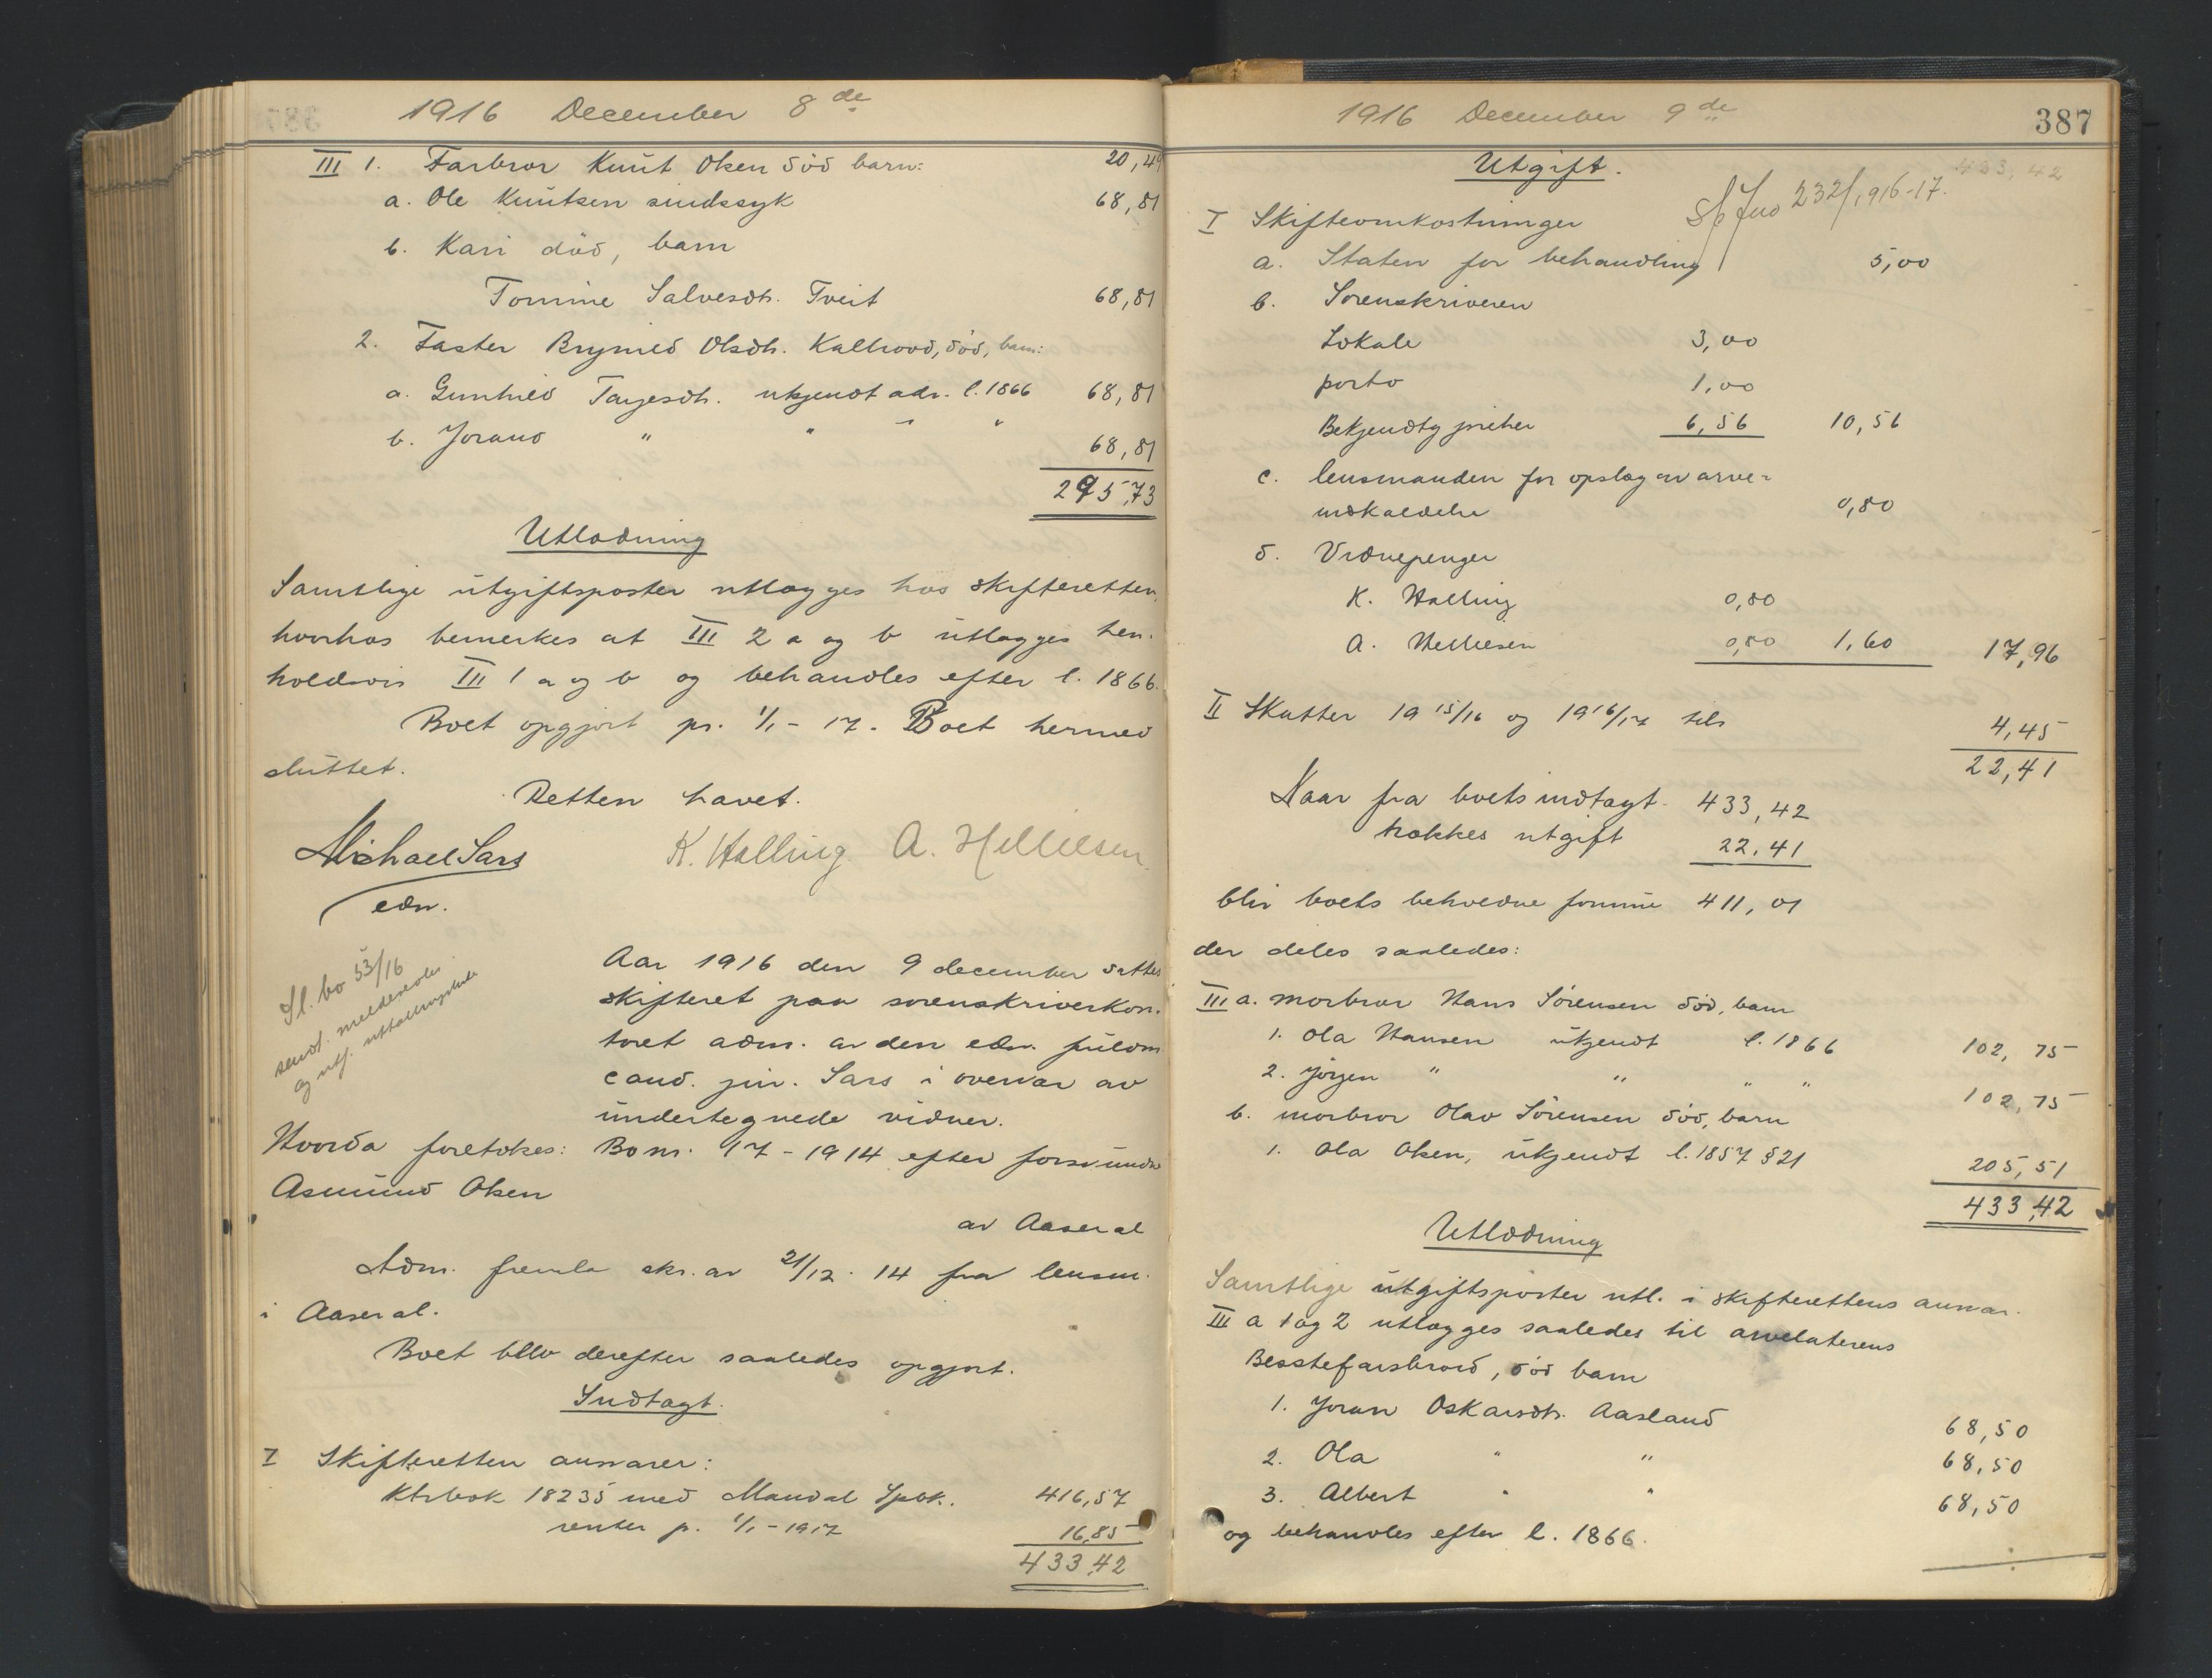 1916 December 8de
III 1. Farbror Knut Olsen död barn: 20,49
a. Ole Knutsen sindssyk 68,81
b. Kari död, barn
Tomine Salvesdtr. Tveit 68,81
2. Faster Brynild Olsdtr. Kalhovd, död, barn:
a. Gunhild Targesdtr. ukjendt adr. l. 1866 68,81
b. Jorand " " " " 68,81
295,73
Utlodning
Samtlige utgiftsposter utlægges hos skifteretten,
hvorhos bemerkes at III 2 a og b utlægges hen-
holdsvis III 1 a og b og behandles efter l. 1866.
Boet opgjort pr. 1/1 - 17. Boet hermed
sluttet.
Retten hævet.
Michael Sars K. Halling A. Hellelsen
edsv.
Sl. bo 53/16
sendt. meldesedler
og utf. uttellingsliste
Aar 1916 den 9 december sattes
skifteret paa sorenskriverkon-
toret adm. av den edsv. fuldm.
cand. jur. Sars i overvær av
undertegnede vidner.
Hvorda foretokes: Bo nr. 17 - 1914 efter forsvundne
Asmund Olsen
av Aaseral
Adm. fremla skr. av 21/12. 14 fra lensm.
i Aaseral.
Boet blev derefter saaledes opgjort.
Indtægt.
I Skifteretten ansvarer:
Ktrbok 18235 med Mandal Spbk. 416,57
renter p. 1/1 - 1917 16,85
433,42
1916 December 9de 387
Utgift. 433,42
232/1916-17.
I Skifteomkostninger
a. Staten for behandling 5,00
b. Sorenskriveren
Lokale 3,00
porto 1,00
Bekjendtgjørelser 6,56 10,56
c. lensmanden for opslag av arve-
indkaldelse 0,80
d. Vidnepenger
K. Halling 0,80
A. Hellelsen 0,80 1,60 17,96
II Skatter 1915/16 og 1916/17 tils 4,45
22,41
Naar fra boets indtægt 433,42
trækkes utgift 22,41
blir boets beholdne formue 411,01
der deles saaledes:
III a. morbror Hans Sörensen död, barn
1. Ola Hansen ukjendt l. 1866 102,75
2. Jörgen " " " " 102,75
b. morbror Olav Sörensen död, barn
1. Ola Olsen, ukjendt l. 1857 § 21 205,51
433,42
Utlodning
Samtlige utgiftsposter utl. i skifterettens ansvar.
III a 1 og 2 utlægges saaledes til arvelaterens
Besstefarsbrord, död barn
1. Joran Oskarsdtr. Aasland 68,50
2. Ola " " 68,50
3. Albert " " 68,50
og behandles efter l. 1866.